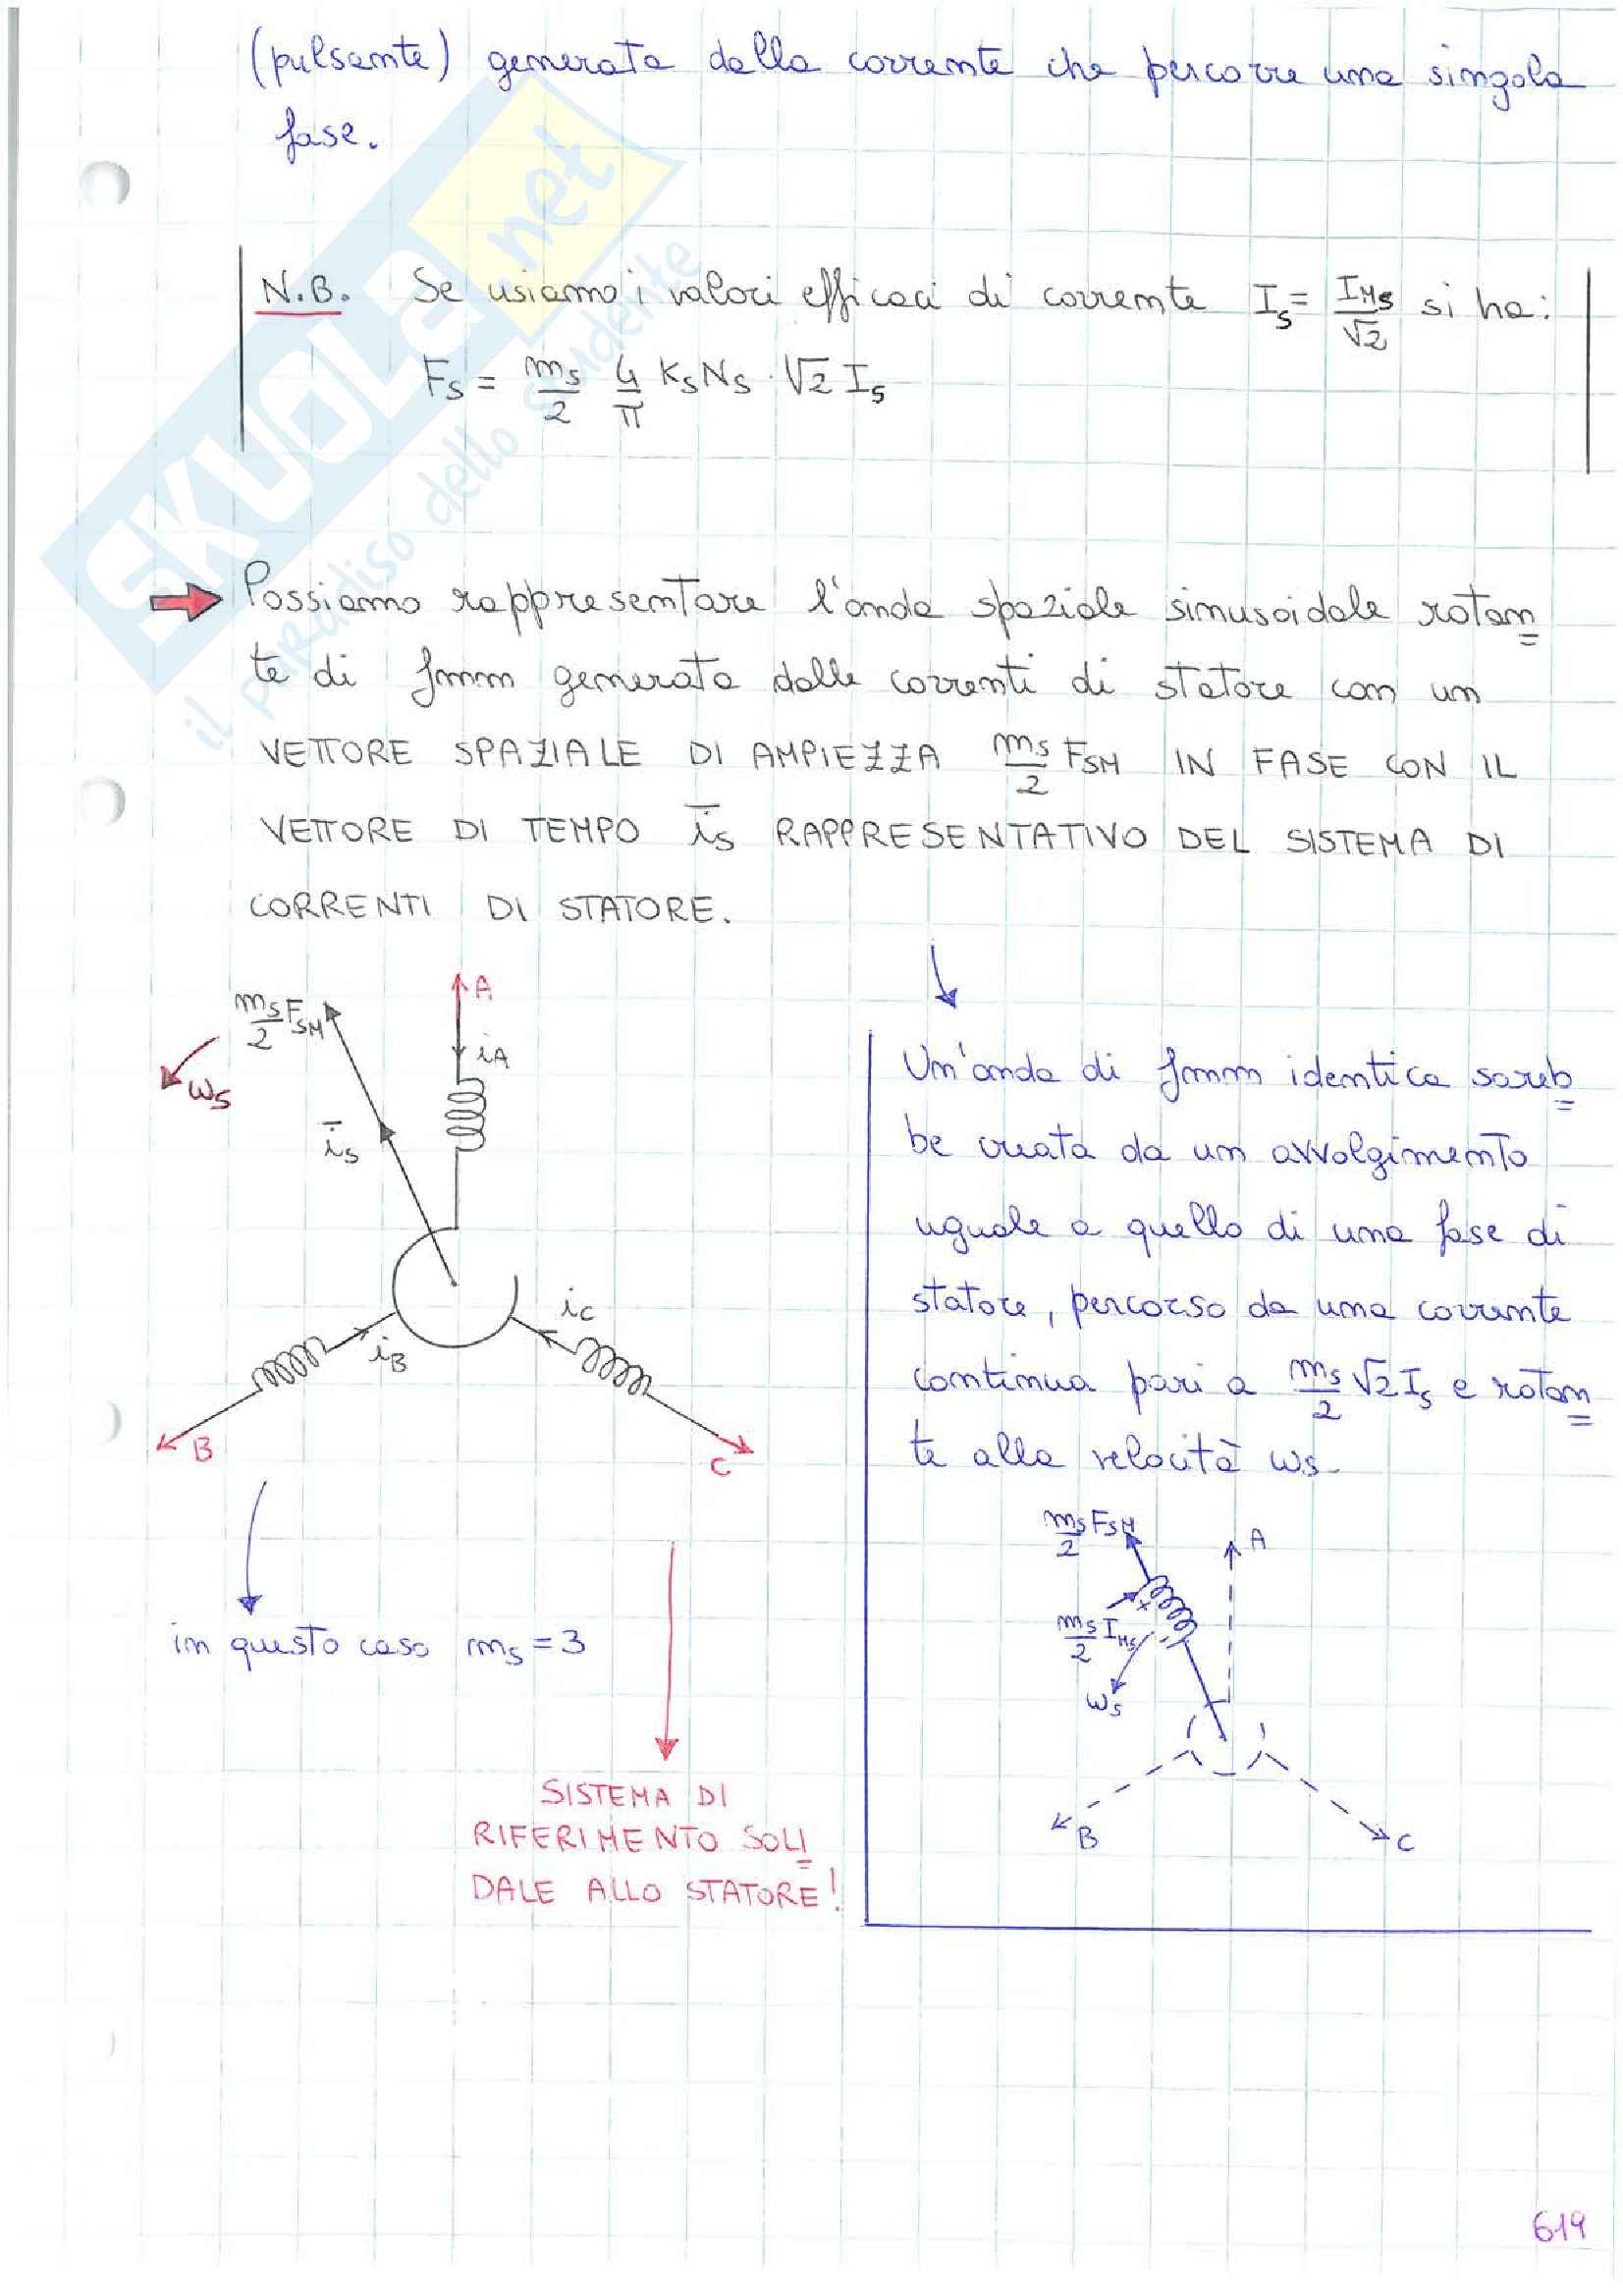 (pulsante) generata dalla corrente che percorre una singola
fase.
N.B. Se usiamo i valori efficaci di corrente I_S = I_MS/√2 si ha:
F_S = m_S/2 4/π K_S N_S · √2 I_S
Possiamo rappresentare l'onda spaziale sinusoidale rotan=
te di fmm generata dalle correnti di statore con un
VETTORE SPAZIALE DI AMPIEZZA m_S/2 F_SM IN FASE CON IL
VETTORE DI TEMPO i̅_S RAPPRESENTATIVO DEL SISTEMA DI
CORRENTI DI STATORE.
m_S/2 F_SM
A
i_A
ω_S
i̅_S
i_C
i_B
B
C
in questo caso m_S = 3
SISTEMA DI
RIFERIMENTO SOLI=
DALE ALLO STATORE!
Un'onda di fmm identica sareb=
be creata da un avvolgimento
uguale a quello di una fase di
statore, percorso da una corrente
continua pari a m_S/2 √2 I_S e rotan=
te alla velocità ω_S.
m_S/2 F_SM
A
+
m_S/2 I_MS
-
ω_S
B
C
619
SKUOLA.net
il paradiso dello studente